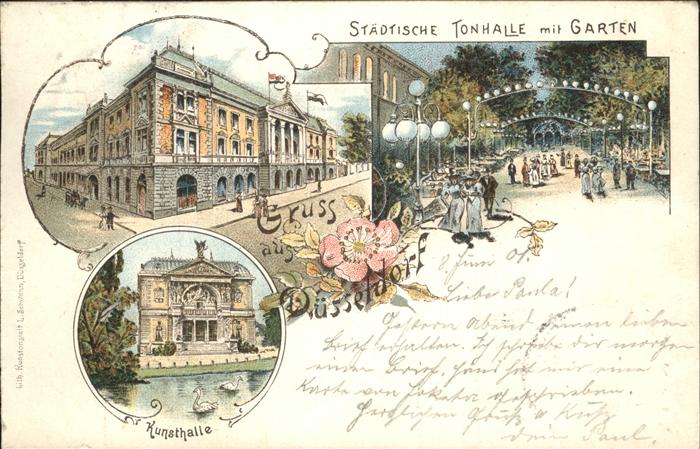 STÄDTISCHE TONHALLE mit GARTEN
Gruss
aus
Düsseldorf
Kunsthalle
Lith. Kunstanstalt L. Düsseldorf
8 Juni 01.
Liebe Paula!
Gestern Abend Deinen lieben
Brief erhalten. Ich schreibe Dir morgen
einen Brief, hat mir eine
Karte von geschrieben.
Herzlichen Gruß u Kuß
Dein Paul.